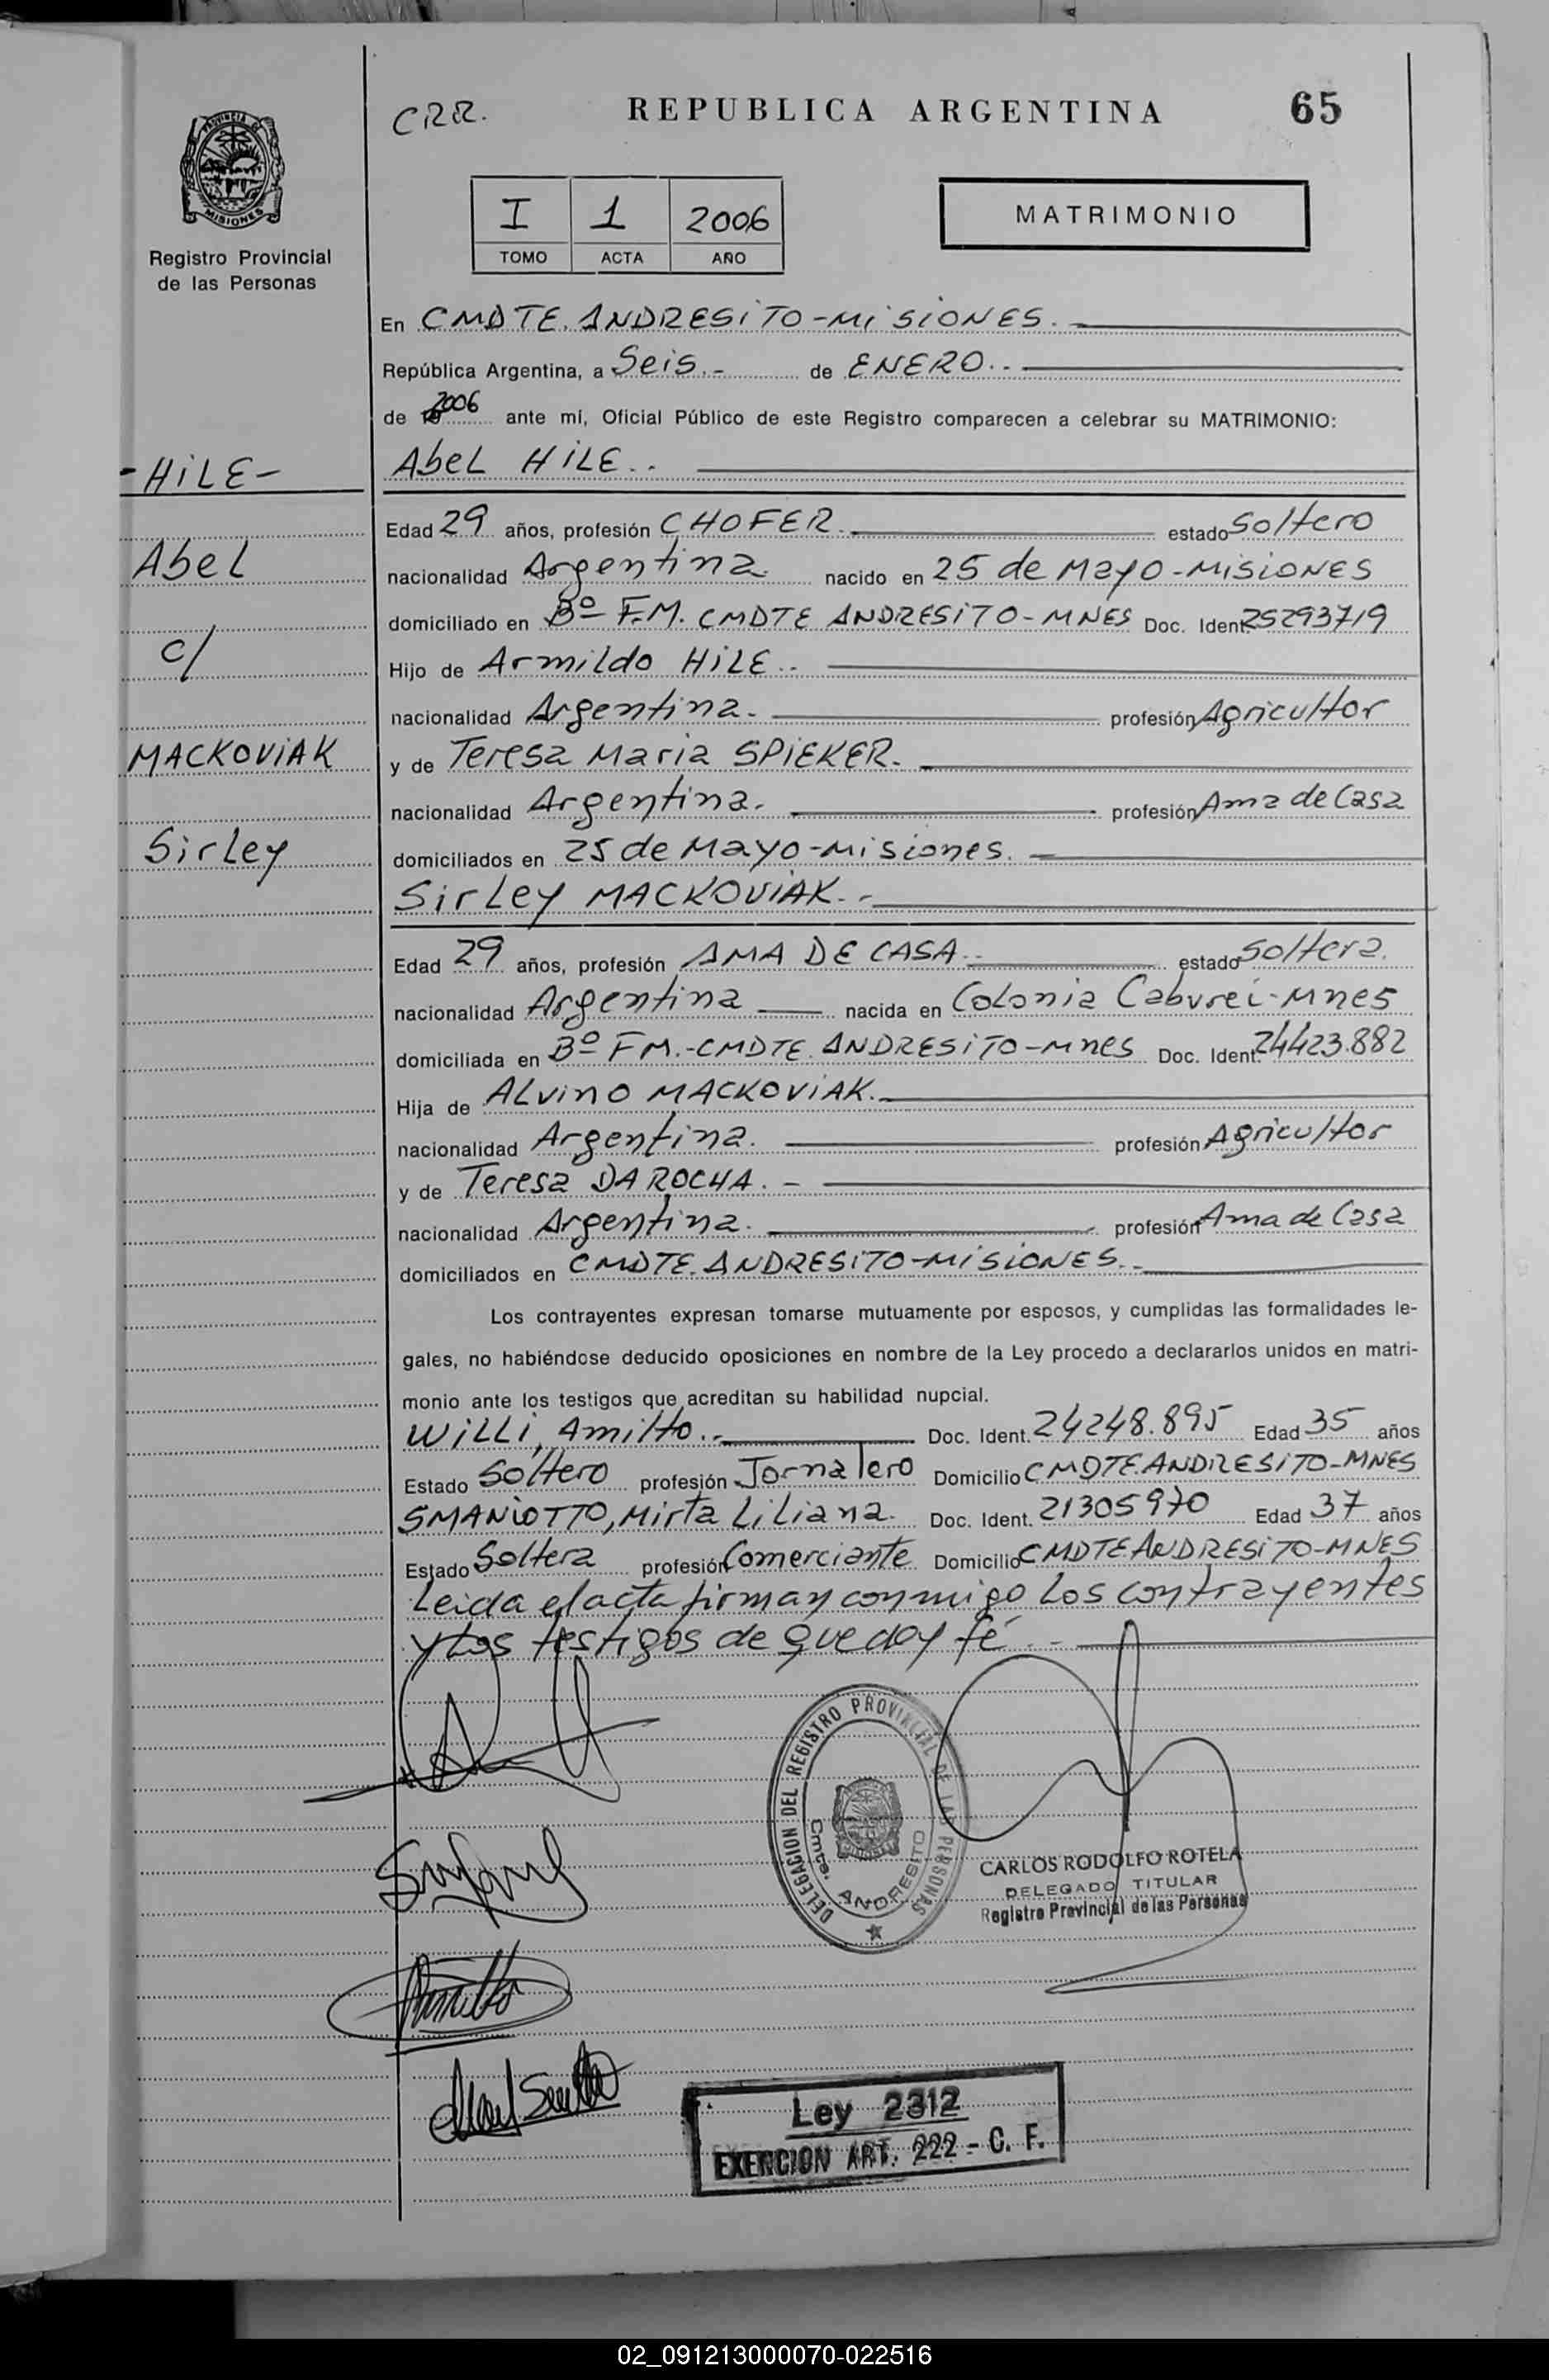 CRR.
REPUBLICA ARGENTINA
65
PROVINCIA DE
MISIONES
Registro Provincial
de las Personas
I 1 2006
TOMO ACTA AÑO
MATRIMONIO
En CMDTE. ANDRESITO-MISIONES.
República Argentina, a Seis.- de ENERO..-
de 2006 ante mí, Oficial Público de este Registro comparecen a celebrar su MATRIMONIO:
-HILE-
Abel HILE..
Edad 29 años, profesión CHOFER. estado Soltero
Abel
nacionalidad Argentina. nacido en 25 de Mayo-MISIONES
domiciliado en Bº F.M. CMDTE ANDRESITO-MNES Doc. Ident. 25293719
c/
Hijo de Armildo HILE..
nacionalidad Argentina.- profesión Agricultor
MACKOVIAK
y de Teresa Maria SPIEKER.
nacionalidad Argentina. profesión Ama de Casa
Sirley
domiciliados en 25 de Mayo-Misiones.
Sirley MACKOVIAK.-
Edad 29 años, profesión AMA DE CASA.. estado Soltera.
nacionalidad Argentina nacida en Colonia Cabureí-Mnes
domiciliada en Bº FM.-CMDTE. ANDRESITO-Mnes Doc. Ident. 24423.882
Hija de ALVINO MACKOVIAK.
nacionalidad Argentina. profesión Agricultor
y de Teresa DA ROCHA. -
nacionalidad Argentina. profesión Ama de Casa
domiciliados en CMDTE. ANDRESITO-MISIONES..
Los contrayentes expresan tomarse mutuamente por esposos, y cumplidas las formalidades le-
gales, no habiéndose deducido oposiciones en nombre de la Ley procedo a declararlos unidos en matri-
monio ante los testigos que acreditan su habilidad nupcial.
WILLI, Amilto.. Doc. Ident. 24248.895 Edad 35 años
Estado Soltero profesión Jornalero Domicilio CMDTE.ANDRESITO-MNES
SMANIOTTO, Mirta Liliana. Doc. Ident. 21305970 Edad 37 años
Estado Soltera profesión Comerciante Domicilio CMDTE ANDRESITO-MNES
Leida el acta firman conmigo Los contrayentes
y Los testigos de que doy fé.-
DELEGACION DEL REGISTRO PROVINCIAL DE LAS PERSONAS
Cmte. ANDRESITO
CARLOS RODOLFO ROTELA
DELEGADO TITULAR
Registro Provincial de las Personas
Amilto
Ley 2312
EXENCION ART. 222 - C. F.
02_091213000070-022516